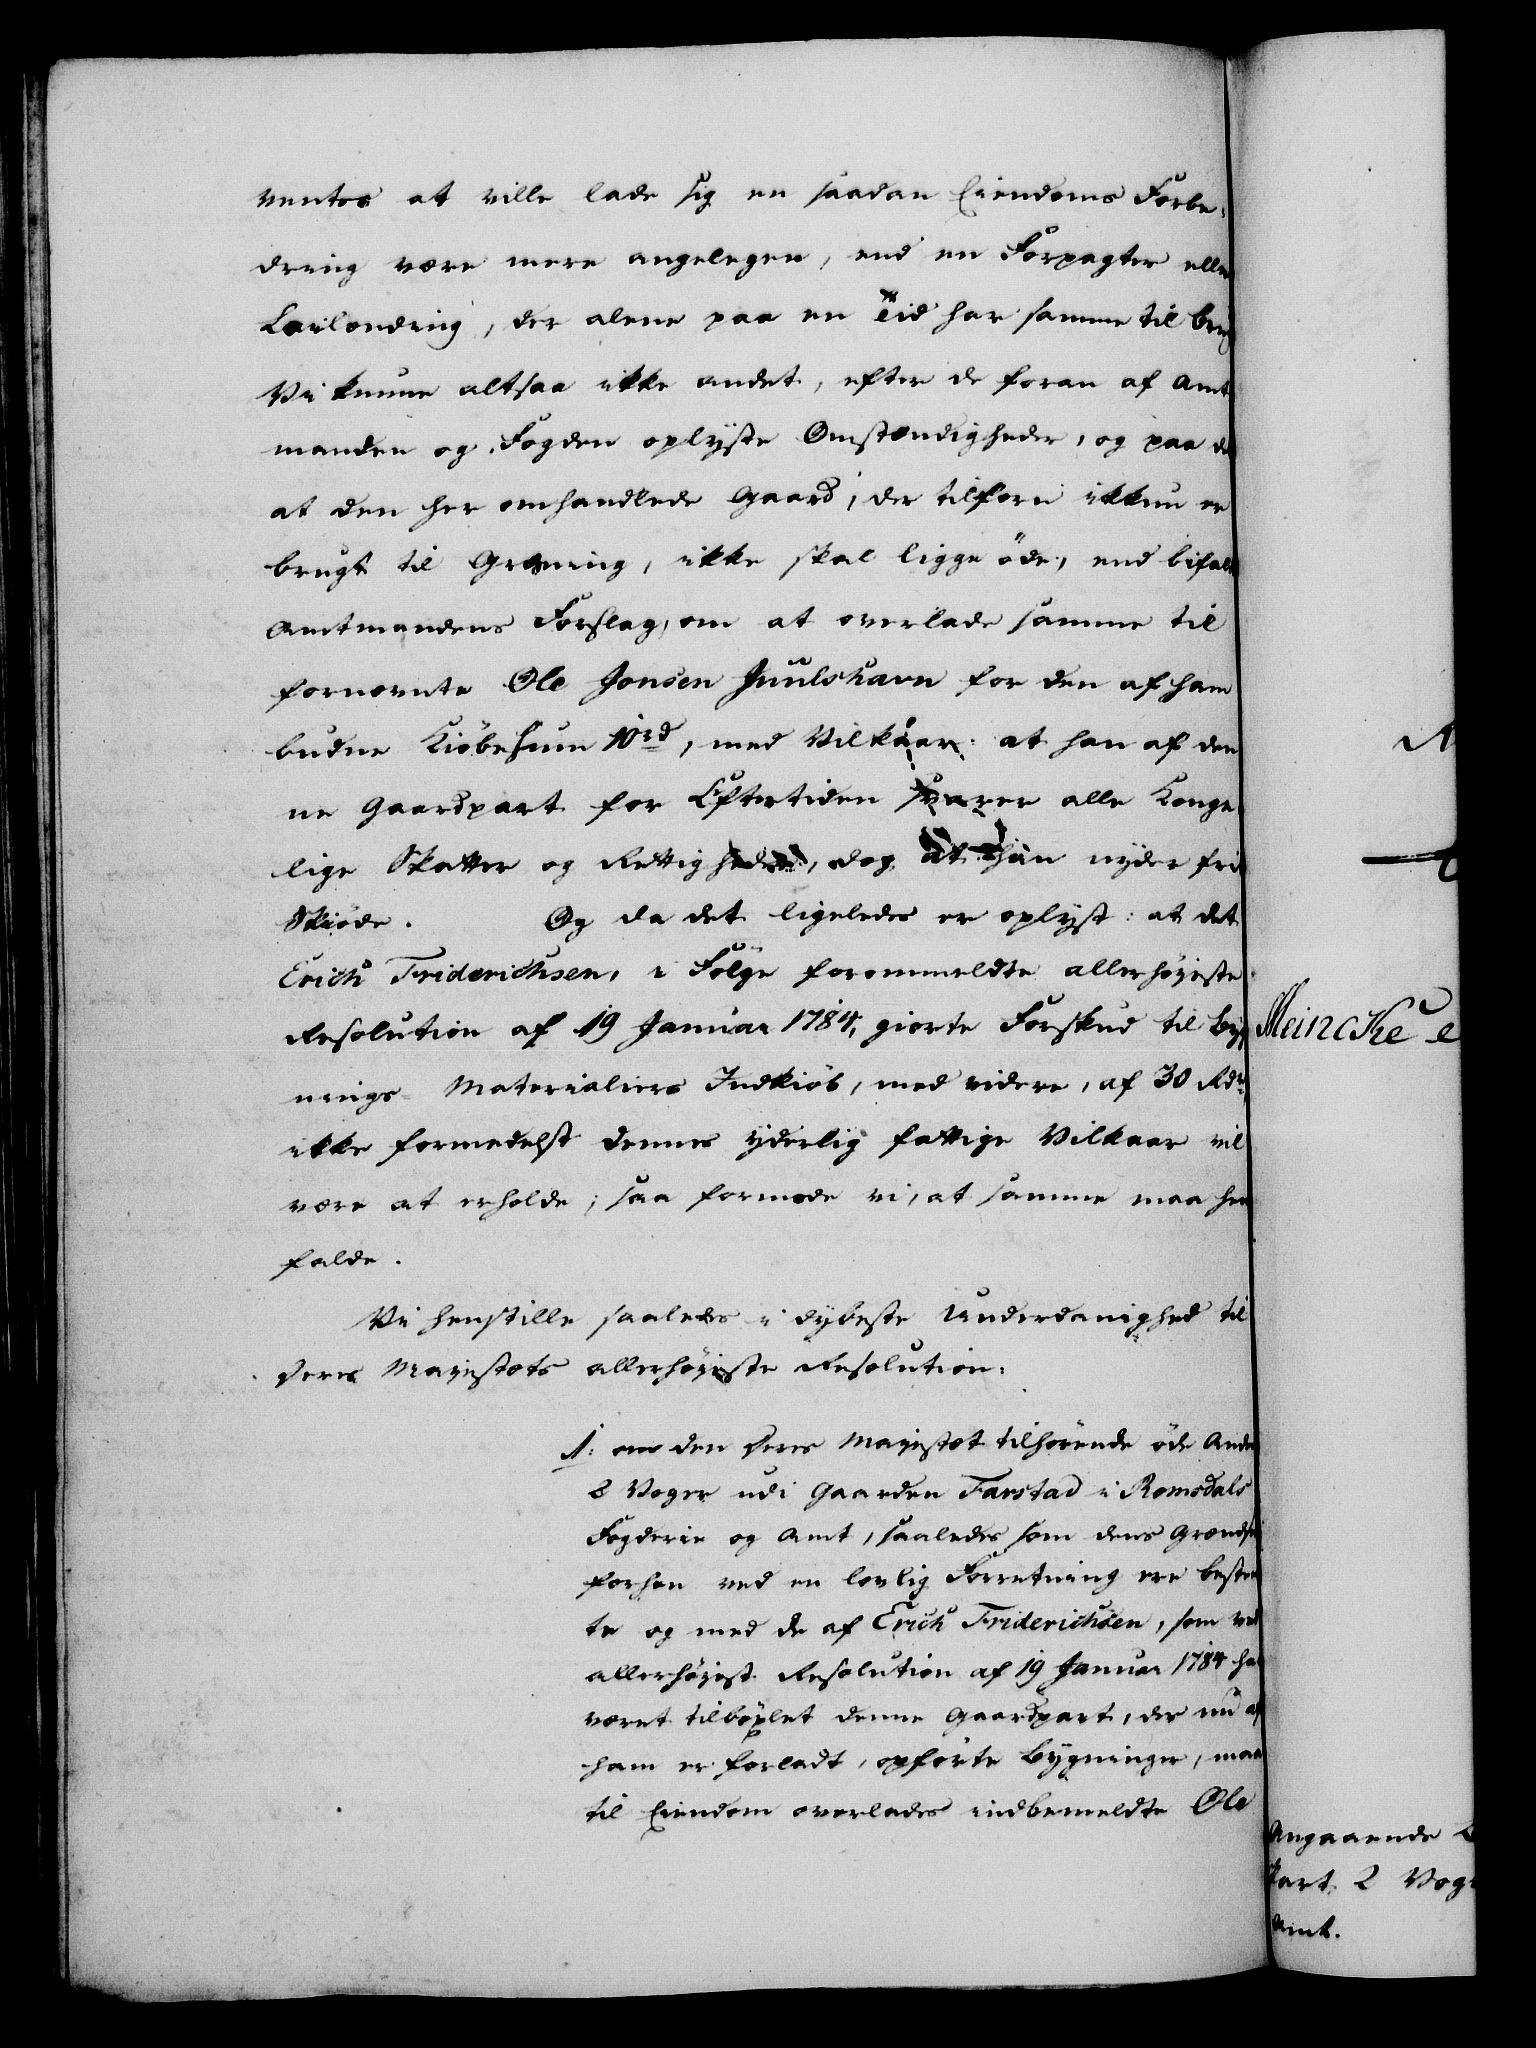 ventes at ville lade sig en saadan Eiendoms Forbe-
dring være mere angelegen, end en Forpagter eller
Leilænding, der alene paa en Tid har samme til brug
Vi kunne altsaa ikke andet, efter de foran af Amt
manden og Fogden oplyste Omstændigheder, og paa det
at den her omhandlede Gaard, der tilforn ikkun er
brugt til Græsning, ikke skal ligge öde, end bifalde
Amtmandens Forslag, om at overlade samme til
fornævnte Ole Jonsen Juulshavn for den af ham
budne Kiöbesum 10 rd, med Vilkaar: at han af den
ne Gaardpart for Eftertiden svarer alle Konge
lige Skatter og Rettigheder, dog at han nyder frit
Skiöde. Og da det ligeledes er oplyst: at det
Erich Friderichsen, i Fölge forommeldte allerhöjeste
Resolution af 19 Januar 1784, giorte Forskud til Byg
nings Materialiers Indkiöb, med videre, af 30 Rdr,
ikke formedelst dennes yderlig fattige Vilkaar vil
være at erholde; saa formode vi, at samme maa hen
falde.
Vi henstille saaledes i dybeste Underdanighed til
Deres Majestæts allerhöjeste Resolution:
1: om den Deres Majestæt tilhörende öde Andeel
2 Voger udi Gaarden Farstad i Romsdals
Fogderie og Amt, saaledes som dens Grændser
forhen ved en lovlig Forretning ere bestem
te og med de af Erich Friderichsen, som ved
allerhöjest Resolution af 19 Januar 1784 har
været tilböxlet denne Gaardpart, der nu af
ham er forladt, opförte Bygninger, maa
til Eiendom overlades indbemeldte Ole
Meincke
Angaaende
Part 2 Vog
Amt.